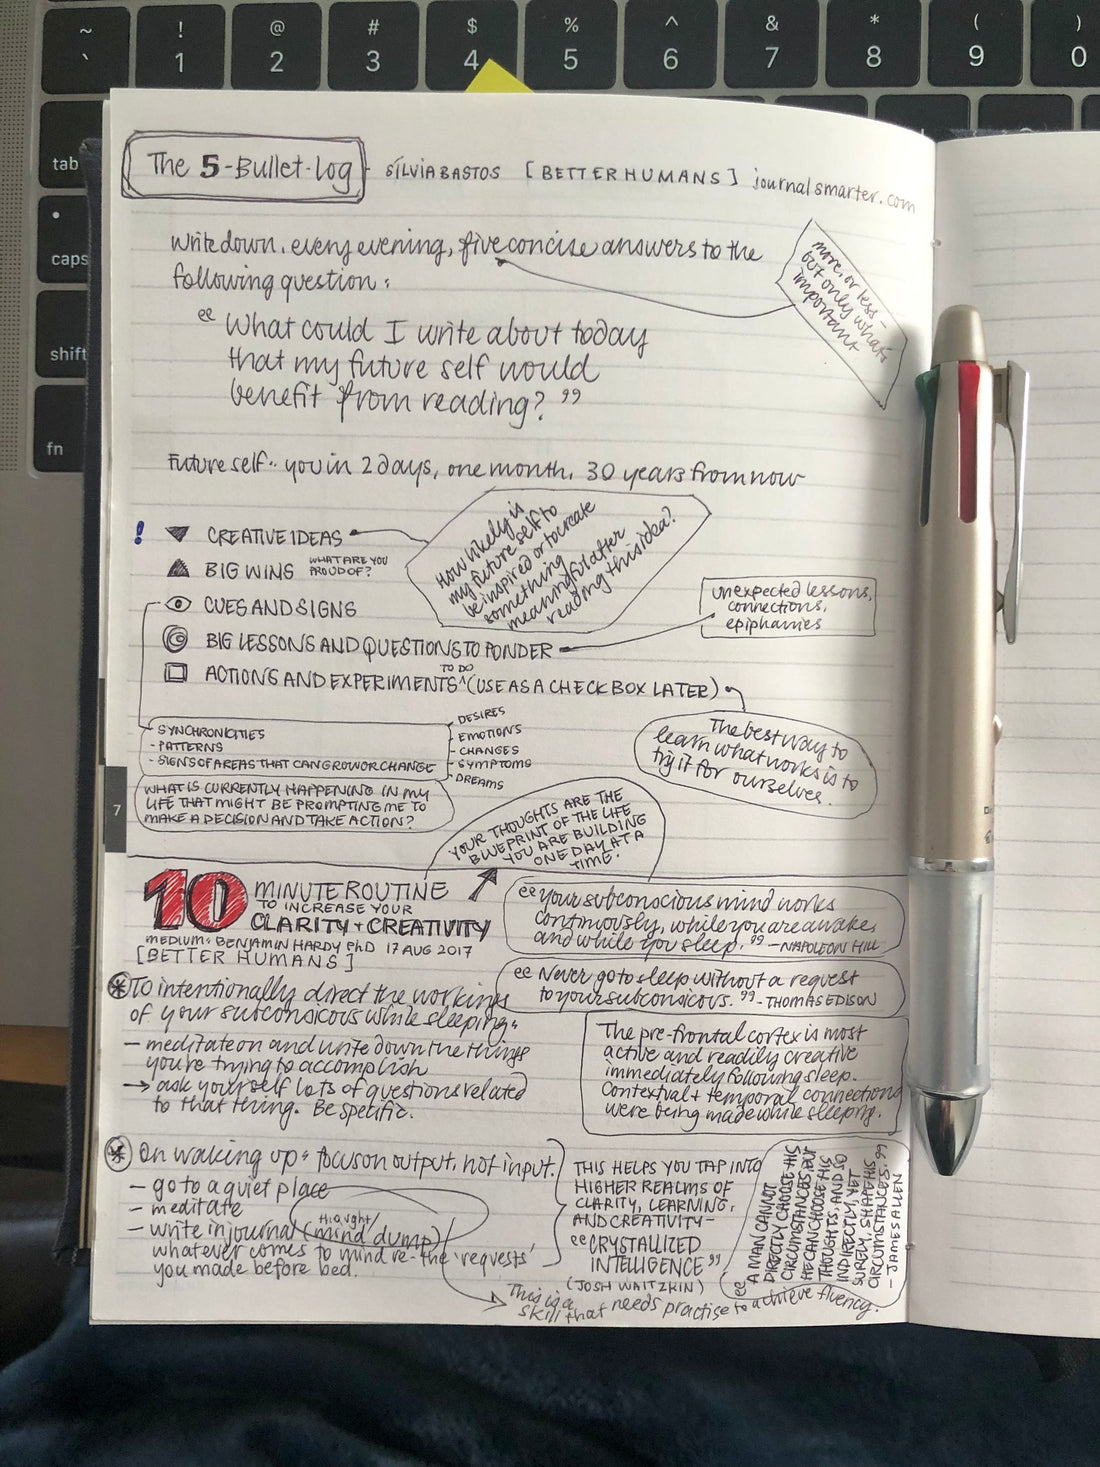 ~ ! @ # $ % ^ & * ( )
` 1 2 3 4 5 6 7 8 9 0
tab
caps
shift
fn
The 5-Bullet-Log - SÍLVIA BASTOS [BETTER HUMANS] journalsmarter.com
Write down, every evening, five concise answers to the
following question:
more, or less -
but only what's
important
“What could I write about today
that my future self would
benefit from reading?”
Future self: you in 2 days, one month, 30 years from now
! CREATIVE IDEAS
How likely is
my future self to
be inspired or to create
something
meaningful after
reading this idea?
BIG WINS WHAT ARE YOU
PROUD OF?
CUES AND SIGNS
unexpected lessons,
connections,
epiphanies
BIG LESSONS AND QUESTIONS TO PONDER
TO DO
ACTIONS AND EXPERIMENTS ^ (USE AS A CHECKBOX LATER)
SYNCHRONICITIES
- PATTERNS
- SIGNS OF AREAS THAT CAN GROW OR CHANGE
DESIRES
EMOTIONS
CHANGES
SYMPTOMS
DREAMS
The best way to
learn what works is to
try it for ourselves.
WHAT IS CURRENTLY HAPPENING IN MY
LIFE THAT MIGHT BE PROMPTING ME TO
MAKE A DECISION AND TAKE ACTION?
7
YOUR THOUGHTS ARE THE
BLUEPRINT OF THE LIFE
YOU ARE BUILDING
ONE DAY AT A
TIME.
10 MINUTE ROUTINE
TO INCREASE YOUR
CLARITY + CREATIVITY
MEDIUM: BENJAMIN HARDY PhD 17 AUG 2017
[BETTER HUMANS]
“Your subconscious mind works
continuously, while you are awake,
and while you sleep.” - NAPOLEON HILL
“Never go to sleep without a request
to your subconsicous.” - THOMAS EDISON
To intentionally direct the workings
of your subconsicous while sleeping:
- meditate on and write down the things
you're trying to accomplish
→ ask yourself lots of questions related
to that thing. Be specific.
The pre-frontal cortex is most
active and readily creative
immediately following sleep.
Contextual + temporal connections
were being made while sleeping.
On waking up: focus on output, not input.
- go to a quiet place
- meditate
thought/
- write in journal (mind dump)
whatever comes to mind re- the 'requests'
you made before bed.
THIS HELPS YOU TAP INTO
HIGHER REALMS OF
CLARITY, LEARNING,
AND CREATIVITY -
“CRYSTALLIZED
INTELLIGENCE”
(JOSH WAITZKIN)
“A MAN CANNOT
DIRECTLY CHOOSE HIS
CIRCUMSTANCES, BUT
HE CAN CHOOSE HIS
THOUGHTS, AND SO
INDIRECTLY, YET
SURELY, SHAPE HIS
CIRCUMSTANCES.”
- JAMES ALLEN
This is a
skill that needs practise to achieve fluency.